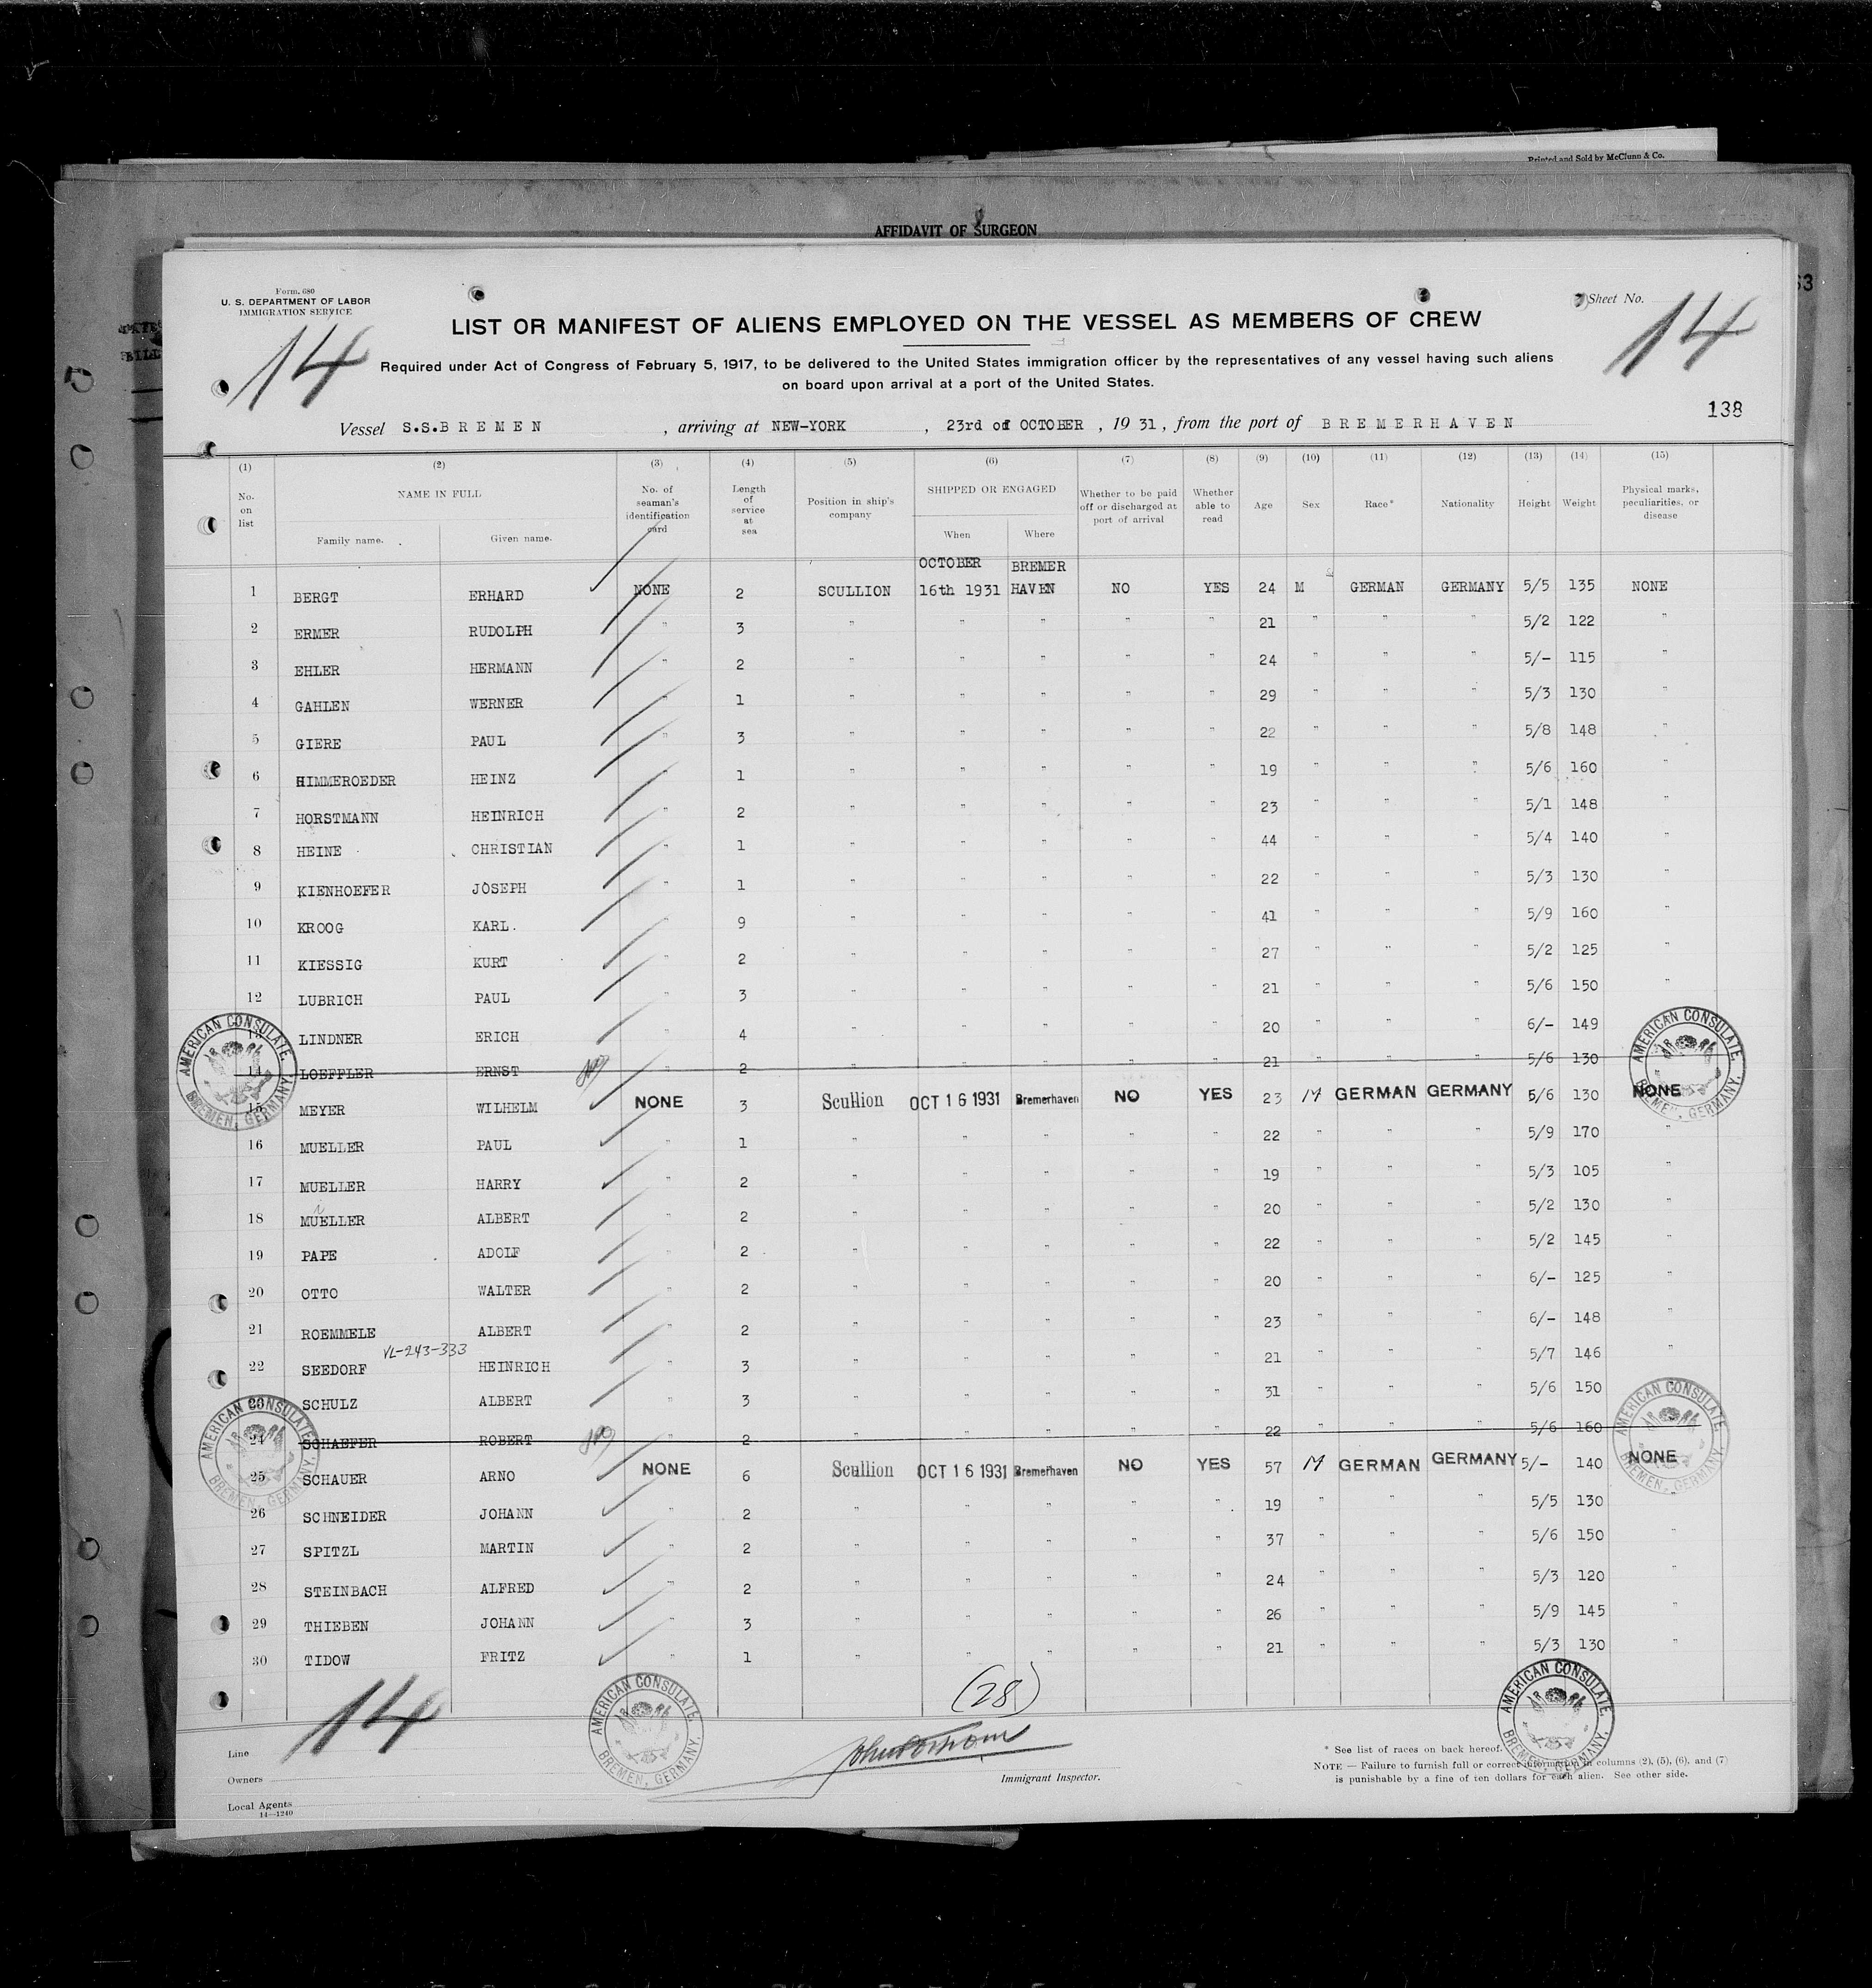 Printed and Sold by McClunn & Co.
AFFIDAVIT OF SURGEON
63
Form. 680
U. S. DEPARTMENT OF LABOR
IMMIGRATION SERVICE
Sheet No.
14
14
LIST OR MANIFEST OF ALIENS EMPLOYED ON THE VESSEL AS MEMBERS OF CREW
Required under Act of Congress of February 5, 1917, to be delivered to the United States immigration officer by the representatives of any vessel having such aliens
on board upon arrival at a port of the United States.
138
Vessel S.S.BREMEN , arriving at NEW-YORK , 23rd of OCTOBER , 19 31, from the port of BREMERHAVEN
(1) (2) (3) (4) (5) (6) (7) (8) (9) (10) (11) (12) (13) (14) (15)
No. on list NAME IN FULL Family name. Given name. No. of seaman's identification card Length of service at sea Position in ship's company SHIPPED OR ENGAGED When Where Whether to be paid off or discharged at port of arrival Whether able to read Age Sex Race* Nationality Height Weight Physical marks, peculiarities, or disease
OCTOBER BREMER
1 BERGT ERHARD NONE 2 SCULLION 16th 1931 HAVEN NO YES 24 M GERMAN GERMANY 5/5 135 NONE
2 ERMER RUDOLPH " 3 " " " " " 21 " " " 5/2 122 "
3 EHLER HERMANN " 2 " " " " " 24 " " " 5/- 115 "
4 GAHLEN WERNER " 1 " " " " " 29 " " " 5/3 130 "
5 GIERE PAUL " 3 " " " " " 22 " " " 5/8 148 "
6 HIMMEROEDER HEINZ " 1 " " " " " 19 " " " 5/6 160 "
7 HORSTMANN HEINRICH " 2 " " " " " 23 " " " 5/1 148 "
8 HEINE CHRISTIAN " 1 " " " " " 44 " " " 5/4 140 "
9 KIENHOEFER JOSEPH " 1 " " " " " 22 " " " 5/3 130 "
10 KROOG KARL. " 9 " " " " " 41 " " " 5/9 160 "
11 KIESSIG KURT " 2 " " " " " 27 " " " 5/2 125 "
12 LUBRICH PAUL " 3 " " " " " 21 " " " 5/6 150 "
13 LINDNER ERICH " 4 " " " " " 20 " " " 6/- 149 "
14 LOEFFLER ERNST " 2 " " " " " 21 " " " 5/6 130
15 MEYER WILHELM NONE 3 Scullion OCT 16 1931 Bremerhaven NO YES 23 M GERMAN GERMANY 5/6 130 NONE
16 MUELLER PAUL " 1 " " " " " 22 " " " 5/9 170 "
17 MUELLER HARRY " 2 " " " " " 19 " " " 5/3 105 "
18 MUELLER ALBERT " 2 " " " " " 20 " " " 5/2 130 "
19 PAPE ADOLF " 2 " " " " " 22 " " " 5/2 145 "
20 OTTO WALTER " 2 " " " " " 20 " " " 6/- 125 "
21 ROEMMELE ALBERT " 2 " " " " " 23 " " " 6/- 148 "
VL-243-333
22 SEEDORF HEINRICH " 3 " " " " " 21 " " " 5/7 146 "
23 SCHULZ ALBERT " 3 " " " " " 31 " " " 5/6 150
24 SCHAEFER ROBERT " 2 " " " " " 22 " " " 5/6 160
25 SCHAUER ARNO NONE 6 Scullion OCT 16 1931 Bremerhaven NO YES 57 M GERMAN GERMANY 5/- 140 NONE
26 SCHNEIDER JOHANN " 2 " " " " " 19 " " " 5/5 130 "
27 SPITZL MARTIN " 2 " " " " " 37 " " " 5/6 150 "
28 STEINBACH ALFRED " 2 " " " " " 24 " " " 5/3 120 "
29 THIEBEN JOHANN " 3 " " " " " 26 " " " 5/9 145 "
30 TIDOW FRITZ " 1 " " " " " 21 " " " 5/3 130 "
AMERICAN CONSULATE. BREMEN, GERMANY.
AMERICAN CONSULATE. BREMEN, GERMANY.
AMERICAN CONSULATE. BREMEN, GERMANY.
AMERICAN CONSULATE. BREMEN, GERMANY.
AMERICAN CONSULATE. BREMEN, GERMANY.
AMERICAN CONSULATE. BREMEN, GERMANY.
14
(28)
Line
Owners
Local Agents
14—1240
Immigrant Inspector.
* See list of races on back hereof.
NOTE — Failure to furnish full or correct information in columns (2), (5), (6), and (7)
is punishable by a fine of ten dollars for each alien. See other side.